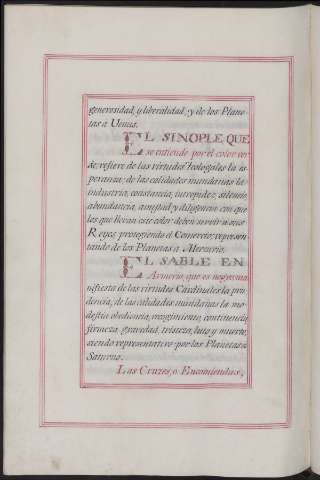 generosidad, y liberalidad; y de los Plane-
tas a Uenus.
EL SINOPLE QUE
se entiende por el color ver-
de, refiere de las virtudes Teologales la es-
peranza; de las calidades mundanas la
industria, constancia, intrepidez, silencio,
abundancia, amistad y diligencia con que
los que llevan este color deben servir a sus
Reyes, protegiendo el Comercio; represen-
tando de los Planetas a Mercurio.
EL SABLE EN
Armeria, que es negro ma-
nifiesta de las virtudes Cardinales la pru-
dencia, de las calidades mundanas la mo-
destia obediencia, recogimiento, continencia,
firmeza, gravedad, tristeza, luto y muerte,
siendo representativo por los Planetas a
Saturno.
Las Cruzes, o Encomiendas,